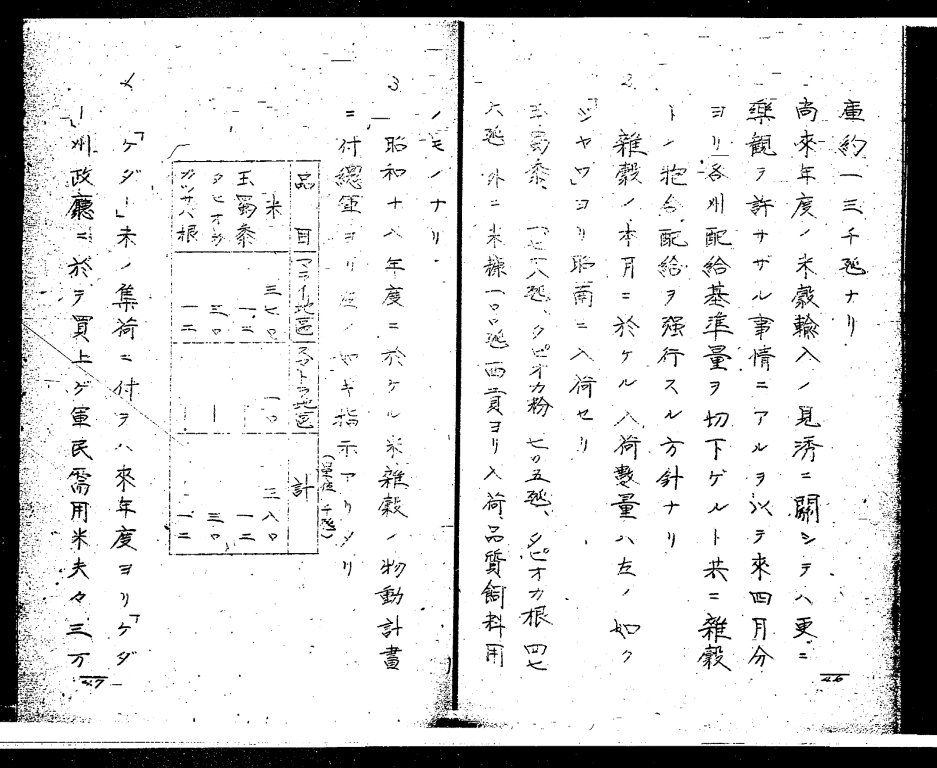 庫約一三千瓲ナリ
尚來年度ノ米穀輸入ノ見透ニ關シテハ更ニ
樂観ヲ許サザル事情ニアルヲ以テ來四月分
ヨリ各州配給基準量ヲ切下ゲルト共ニ雜穀
トノ抱合配給ヲ强行スル方針ナリ
2 雜穀ノ本月ニ於ケル入荷數量ハ左ノ如ク
「ジャワ」ヨリ昭南ニ入荷セリ
玉蜀黍 一七一八瓲、タピオカ粉 七〇五瓲、タピオカ根 四七
六瓲 外ニ米糠一〇〇瓲西貢ヨリ入荷、品質飼料用
46
ノモノナリ
3 昭和十八年度ニ於ケル米雜穀ノ物動計畫
ニ付總軍ヨリ左ノ如キ指示アリタリ
(單位 千瓲)
品目 マライ地區 スマトラ地區 計
米 三七〇 一〇 三八〇
玉蜀黍 一二 一二
タピオカ 三〇 一 三〇
カッサバ根 一二 一二
4 「ケダー」米ノ集荷ニ付テハ來年度ヨリ「ケダ
ー」州政廳ニ於テ買上ゲ軍民需用米夫々三万
47